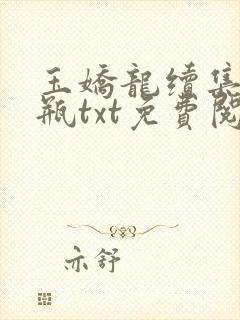 玉嬌龍續集
瓶txt免費閱
亦舒